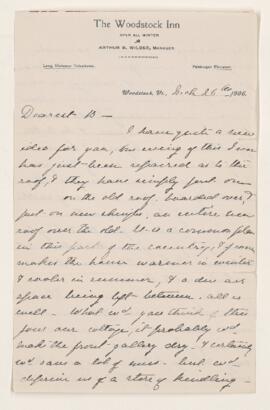 The Woodstock Inn
OPEN ALL WINTER
ARTHUR B. WILDER, MANAGER
Long Distance Telephone. Passenger Elevator.
Woodstock, Vt., 26th 1906
Dearest B—
I have quite a new
idea for you, the wing of this Inn
has just been repaired as to the
roof, & they have simply put on—
on the old roof, boarded over &
put on new shingles, an entire new
roof over the old. It is a common plan
in this part of the country, & of course
makes the house warmer in winter
& cooler in summer, & a dead air
space being left between. all is
well— What wd you think of this
for our cottage, it probably wd
make the front gallery dry— & certainly
wd save a lot of muss— but wd
deprive us of a store of kindling—